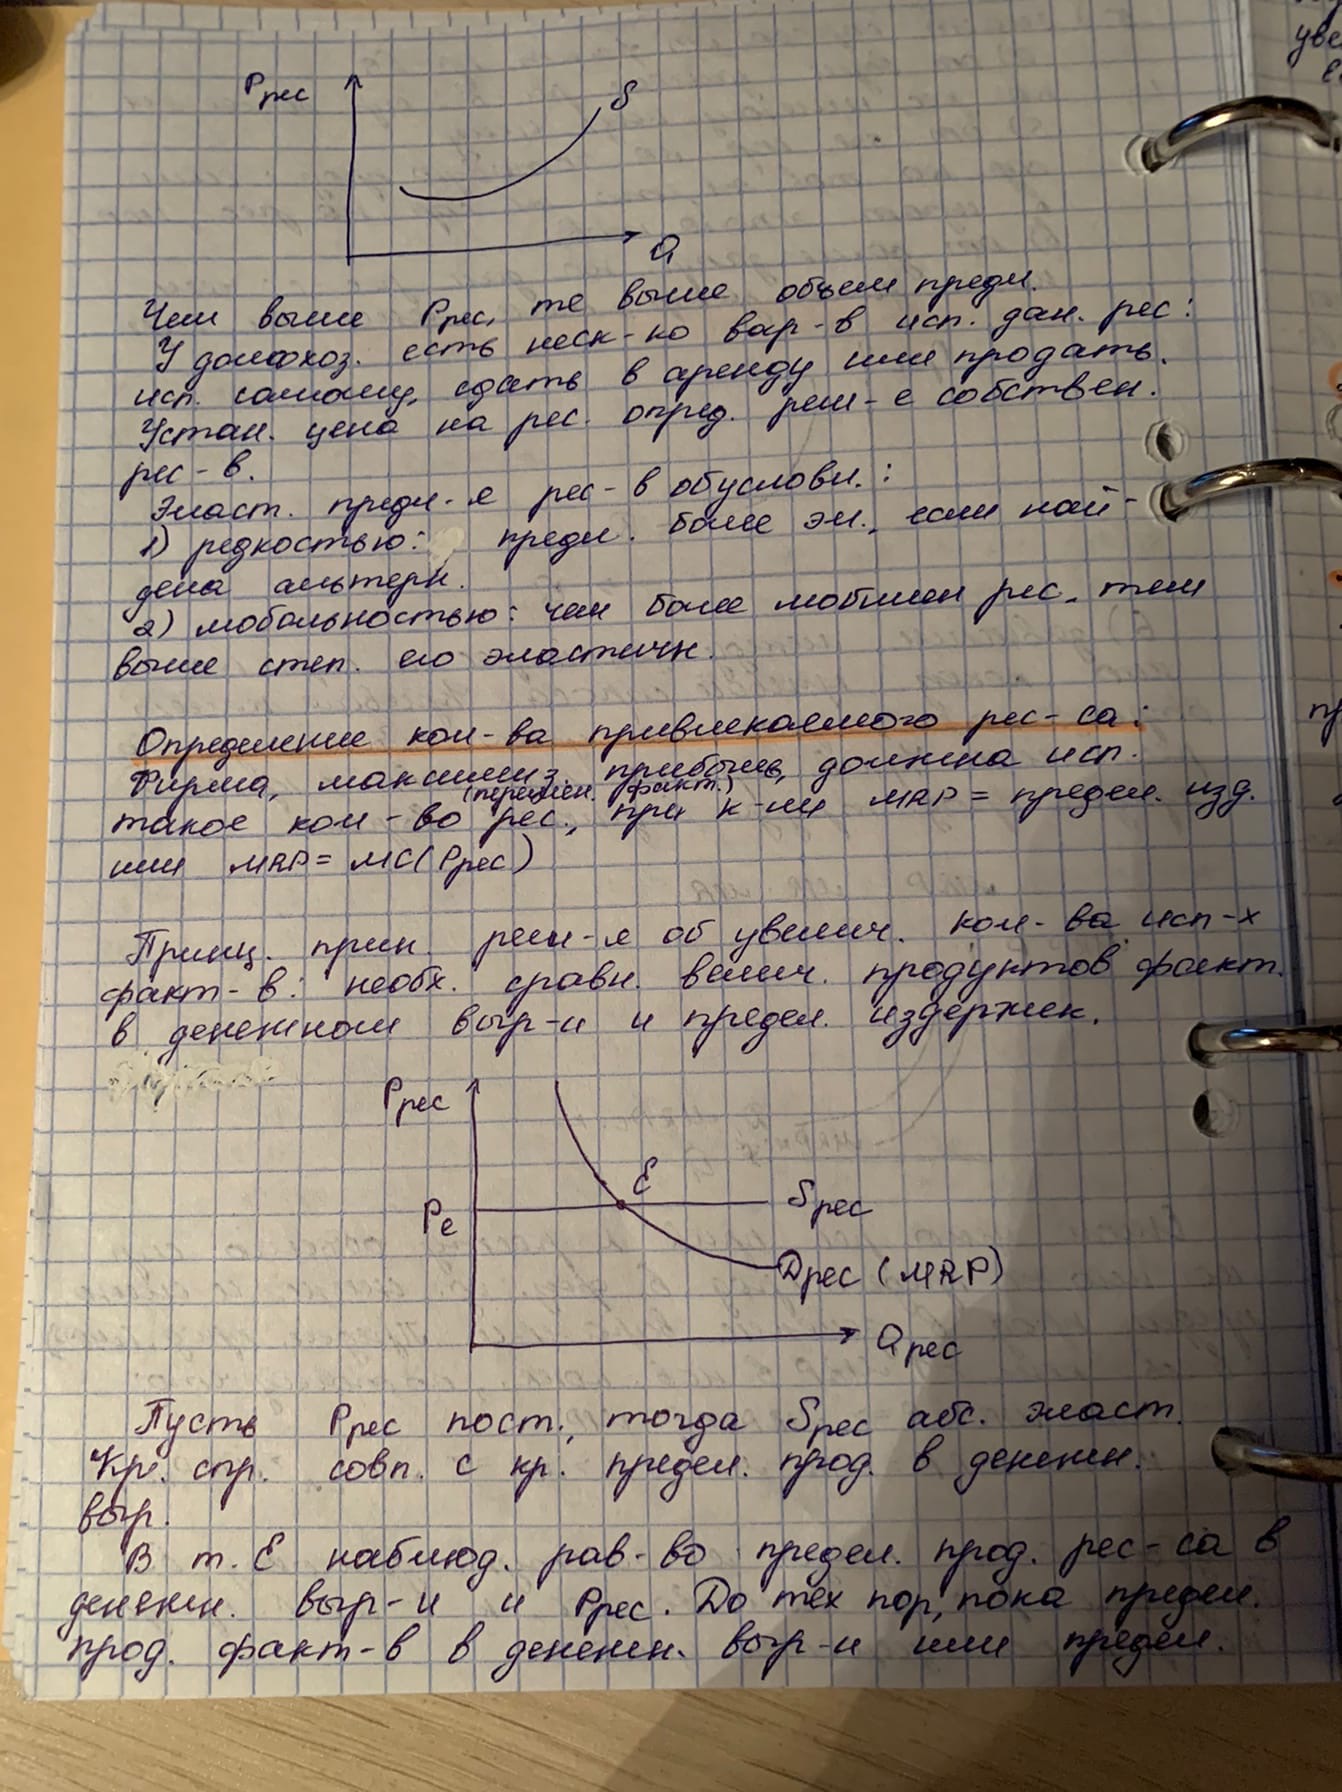 Pрес
S
Q
Чем выше Pрес, те выше объем предл.
У домохоз. есть неск-ко вар-в исп. дан. рес:
исп. самому, сдать в аренду или продать.
Устан. цена на рес. опред. реш-е собствен.
рес-в.
Эласт. предл-я рес-в обусловл.:
1) редкостью: предл. более эл., если най-
дена альтерн.
2) мобольностью: чем более мобилен рес., тем
выше степ. его эластичн.
Определение кол-ва привлекаемого рес-са:
Фирма, максимиз. прибыль, должна исп.
(перемен. факт.)
такое кол-во рес., при к-ли MRP = предел. изд.
или MRP = MC(Pрес)
Принц. прин. реш-я об увелич. кол-ва исп-х
факт-в: необх. сравн. велич. продуктов факт.
в денежном выр-и и предел. издержек.
Pрес
E
Sрес
Pe
Dрес (MRP)
Qрес
Пусть Pрес пост., тогда Sрес абс. эласт.
Кр. спр. совп. с кр. предел. прод. в денежн.
выр.
В т. E наблюд. рав-во предел. прод. рес-са в
денежн. выр-и и Pрес. До тех пор, пока предел.
прод. факт-в в денежн. выр-и или предел.